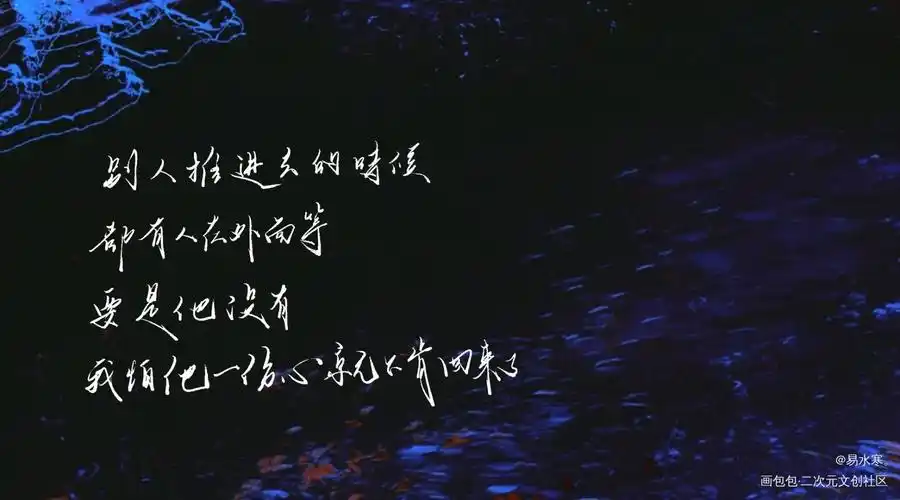 别人推进去的時候
都有人在外面等
要是他没有
我怕他一伤心就不肯回来了
@易水寒
画包包·二次元文创社区